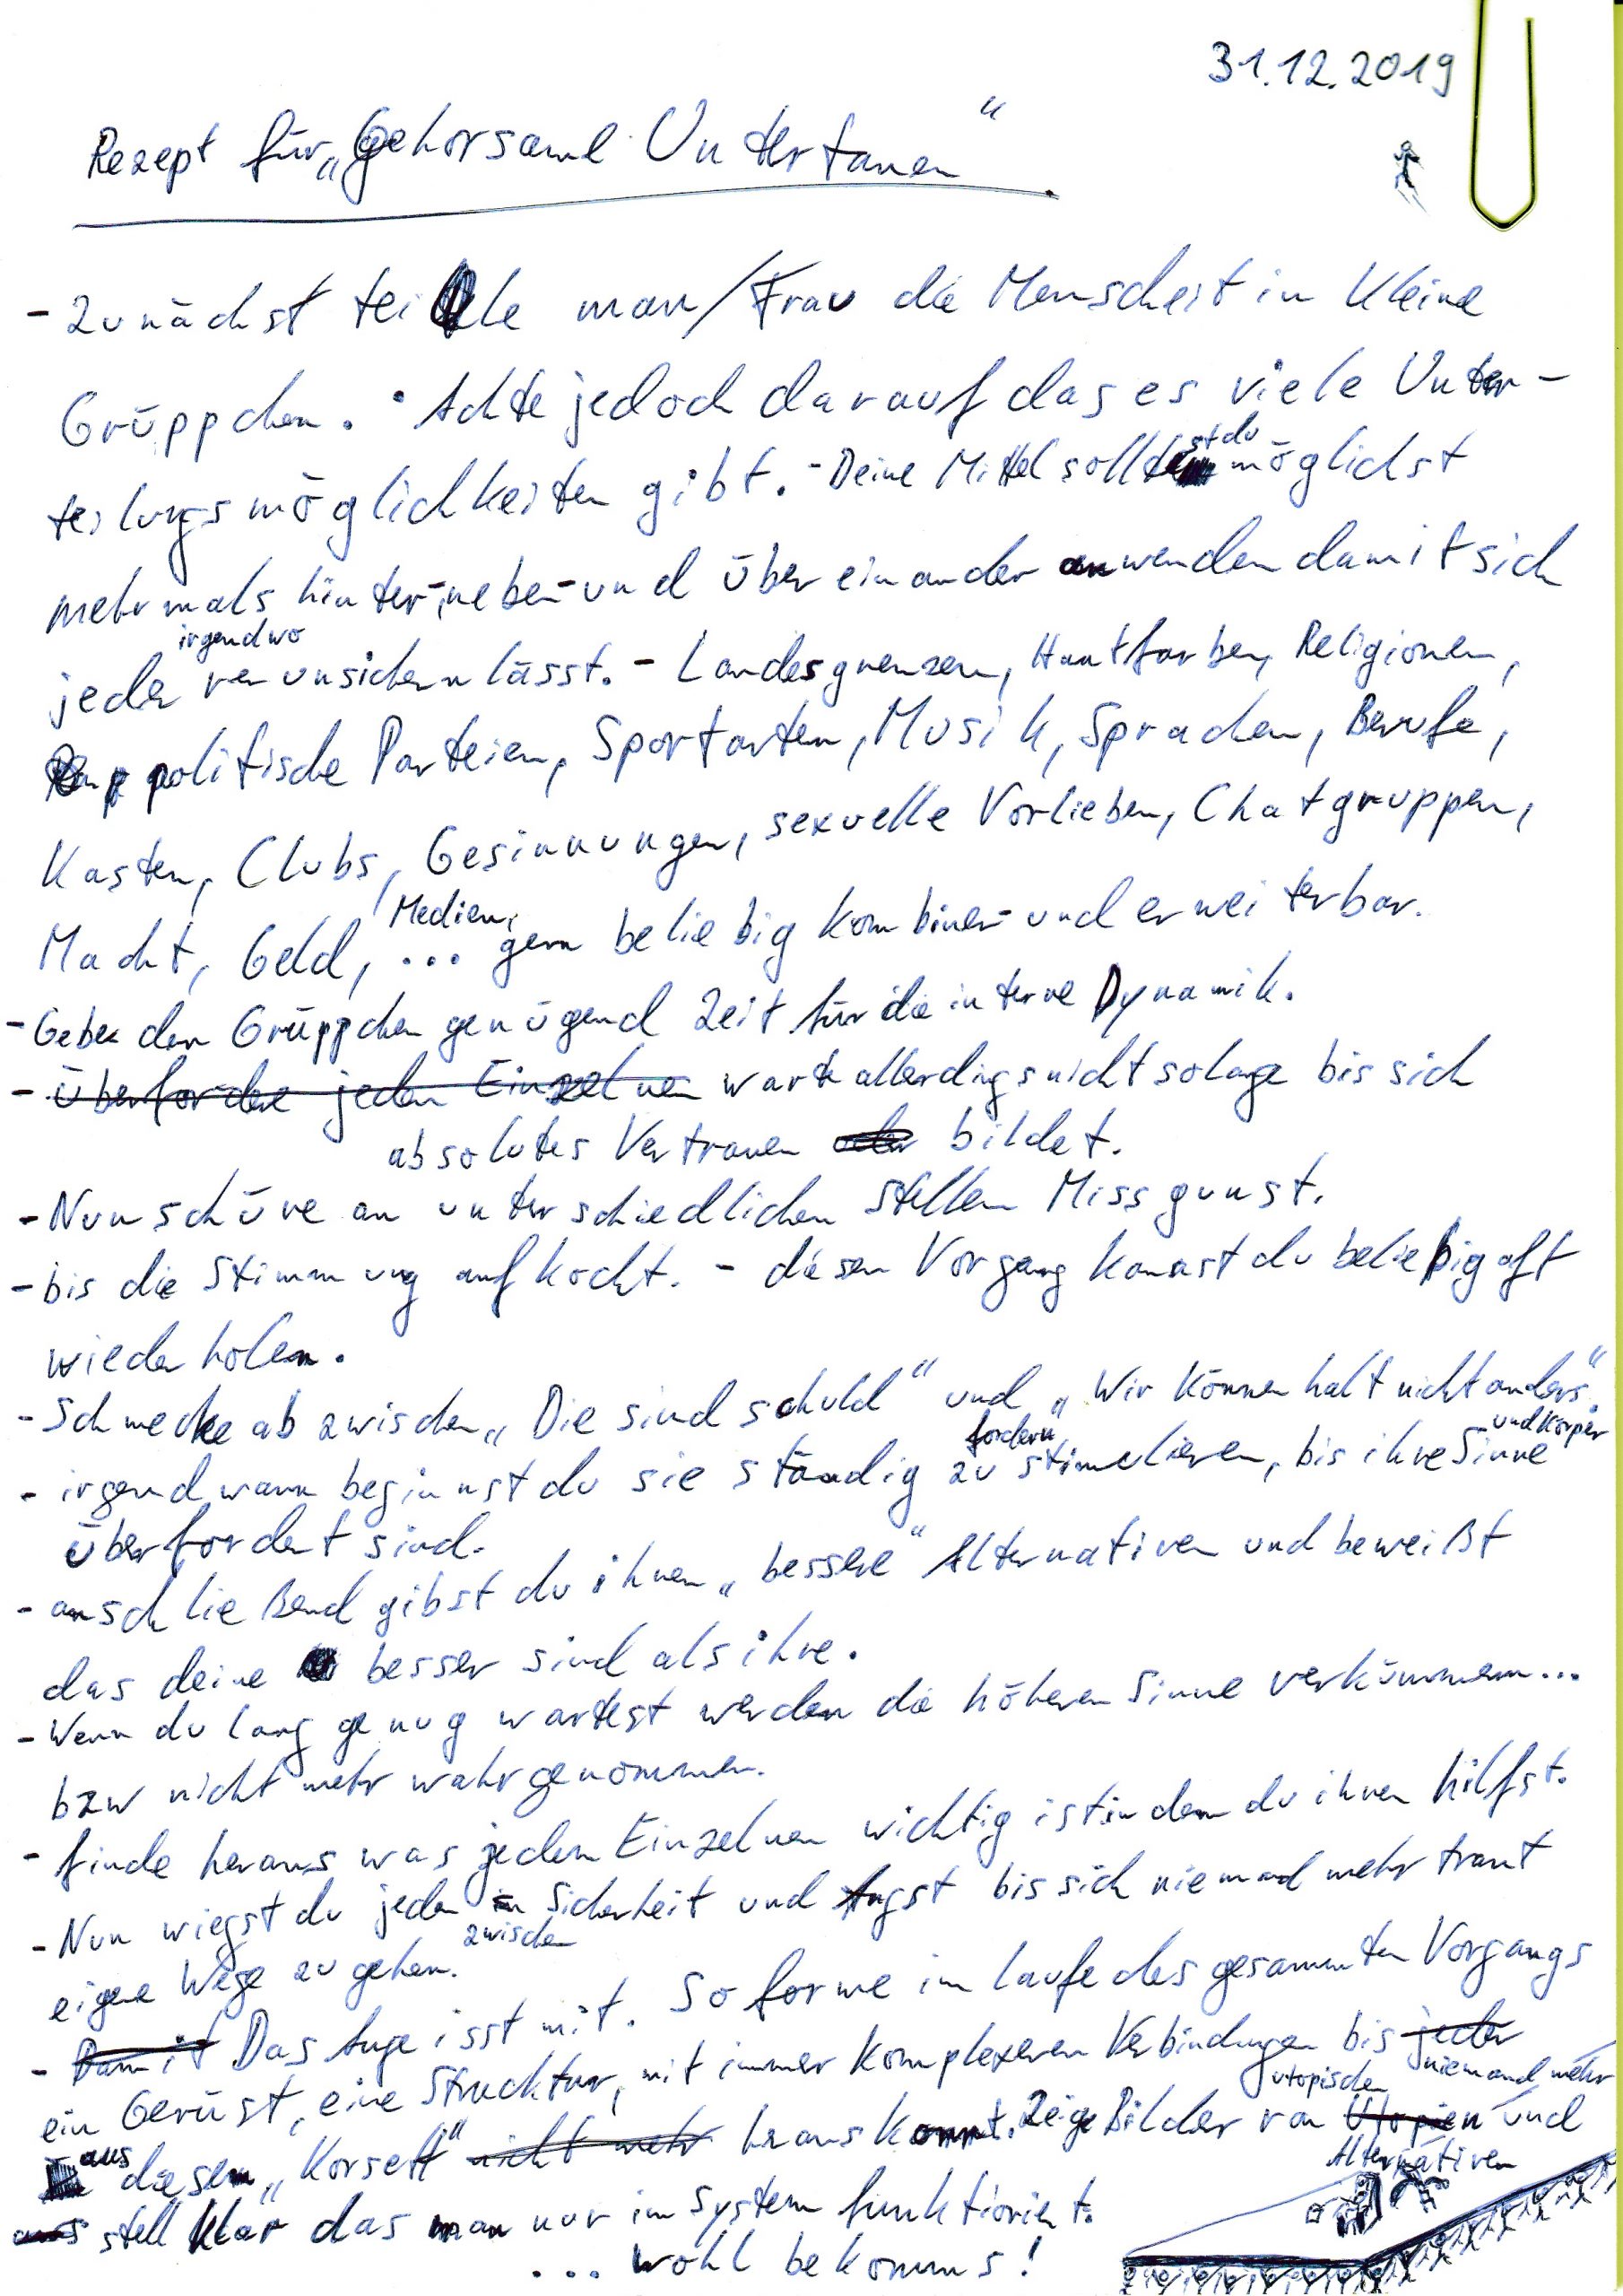 31.12.2019
Rezept für „Gehorsame Untertanen“
- Zunächst teile man/Frau die Menscheit in kleine
Grüppchen. • Achte jedoch darauf das es viele Unter-
teilungsmöglichkeiten gibt. - Deine Mittel solltest du möglichst
mehrmals hinter-, neben- und übereinander anwenden damit sich
jeder irgendwo verunsichern lässt. - Landesgrenzen, Hautfarben, Religionen,
politische Parteien, Sportarten, Musik, Sprachen, Berufe,
Kasten, Clubs, Gesinnungen, sexuelle Vorlieben, Chatgruppen,
Macht, Geld, Medien, ... gern beliebig kombinier- und erweiterbar.
- Gebe den Grüppchen genügend Zeit für die interne Dynamik.
- Überfordere jeden Einzelnen warte allerdings nicht solage bis sich
absolutes Vertrauen oder bildet.
- Nun schüre an unterschiedlichen Stellen Missgunst.
- bis die Stimmung aufkocht. - diesen Vorgang kannst du beliebig oft
wiederholen.
- Schmecke ab zwischen „Die sind schuld“ und „Wir können halt nicht anders“.
- irgendwann beginnst du sie ständig zu fordern, stimulieren, bis ihre Sinne und Körper
überfordert sind.
- anschließend gibst du ihnen „bessere“ Alternativen und beweißt
das deine besser sind als ihre.
- Wenn du lang genug wartest werden die höheren Sinne verkümmern...
bzw nicht mehr wahrgenommen.
- finde heraus was jedem Einzelnen wichtig ist indem du ihnen hilfst.
- Nun wiegst du jeden in zwischen Sicherheit und Angst bis sich niemand mehr traut
eigene Wege zu gehen.
- Damit Das Auge isst mit. So forme im laufe des gesammten Vorgangs
ein Gerüst, eine Strucktur, mit immer komplexeren Verbindungen bis jeder niemand mehr
aus diesem „Korsett“ nicht mehr heraus kommt. Zeige Bilder von utopischen Utopien Alternativen und
aus stell klar das man nur im System funktioniert.
... wohl bekomms!